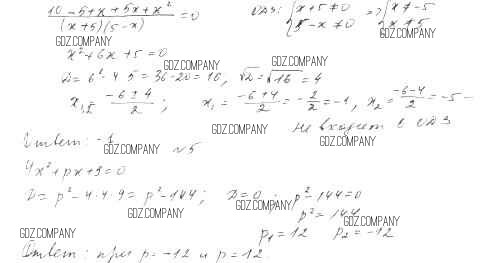 10-5+x+5x+x² / (x+5)(5-x) = 0    ОДЗ: {x+5≠0 5-x≠0 => {x≠-5 x≠5
GDZ.COMPANY GDZ.COMPANY
x²+6x+5=0
GDZ.COMPANY GDZ.COMPANY
D = 6²-4·5 = 36-20 = 16, √D = √16 = 4
GDZ.COMPANY
x₁,₂ = -6±4 / 2; x₁ = -6+4 / 2 = -2/2 = -1, x₂ = -6-4 / 2 = -5 -
GDZ.COMPANY не входит в ОДЗ
Ответ: -1
GDZ.COMPANY №5 GDZ.COMPANY
4x²+px+9=0
D = p²-4·4·9 = p²-144; D=0; p²-144=0
GDZ.COMPANY GDZ.COMPANY
p²=144
GDZ.COMPANY
p₁=12 p₂=-12
GDZ.COMPANY
Ответ: при p=-12 и p=12.